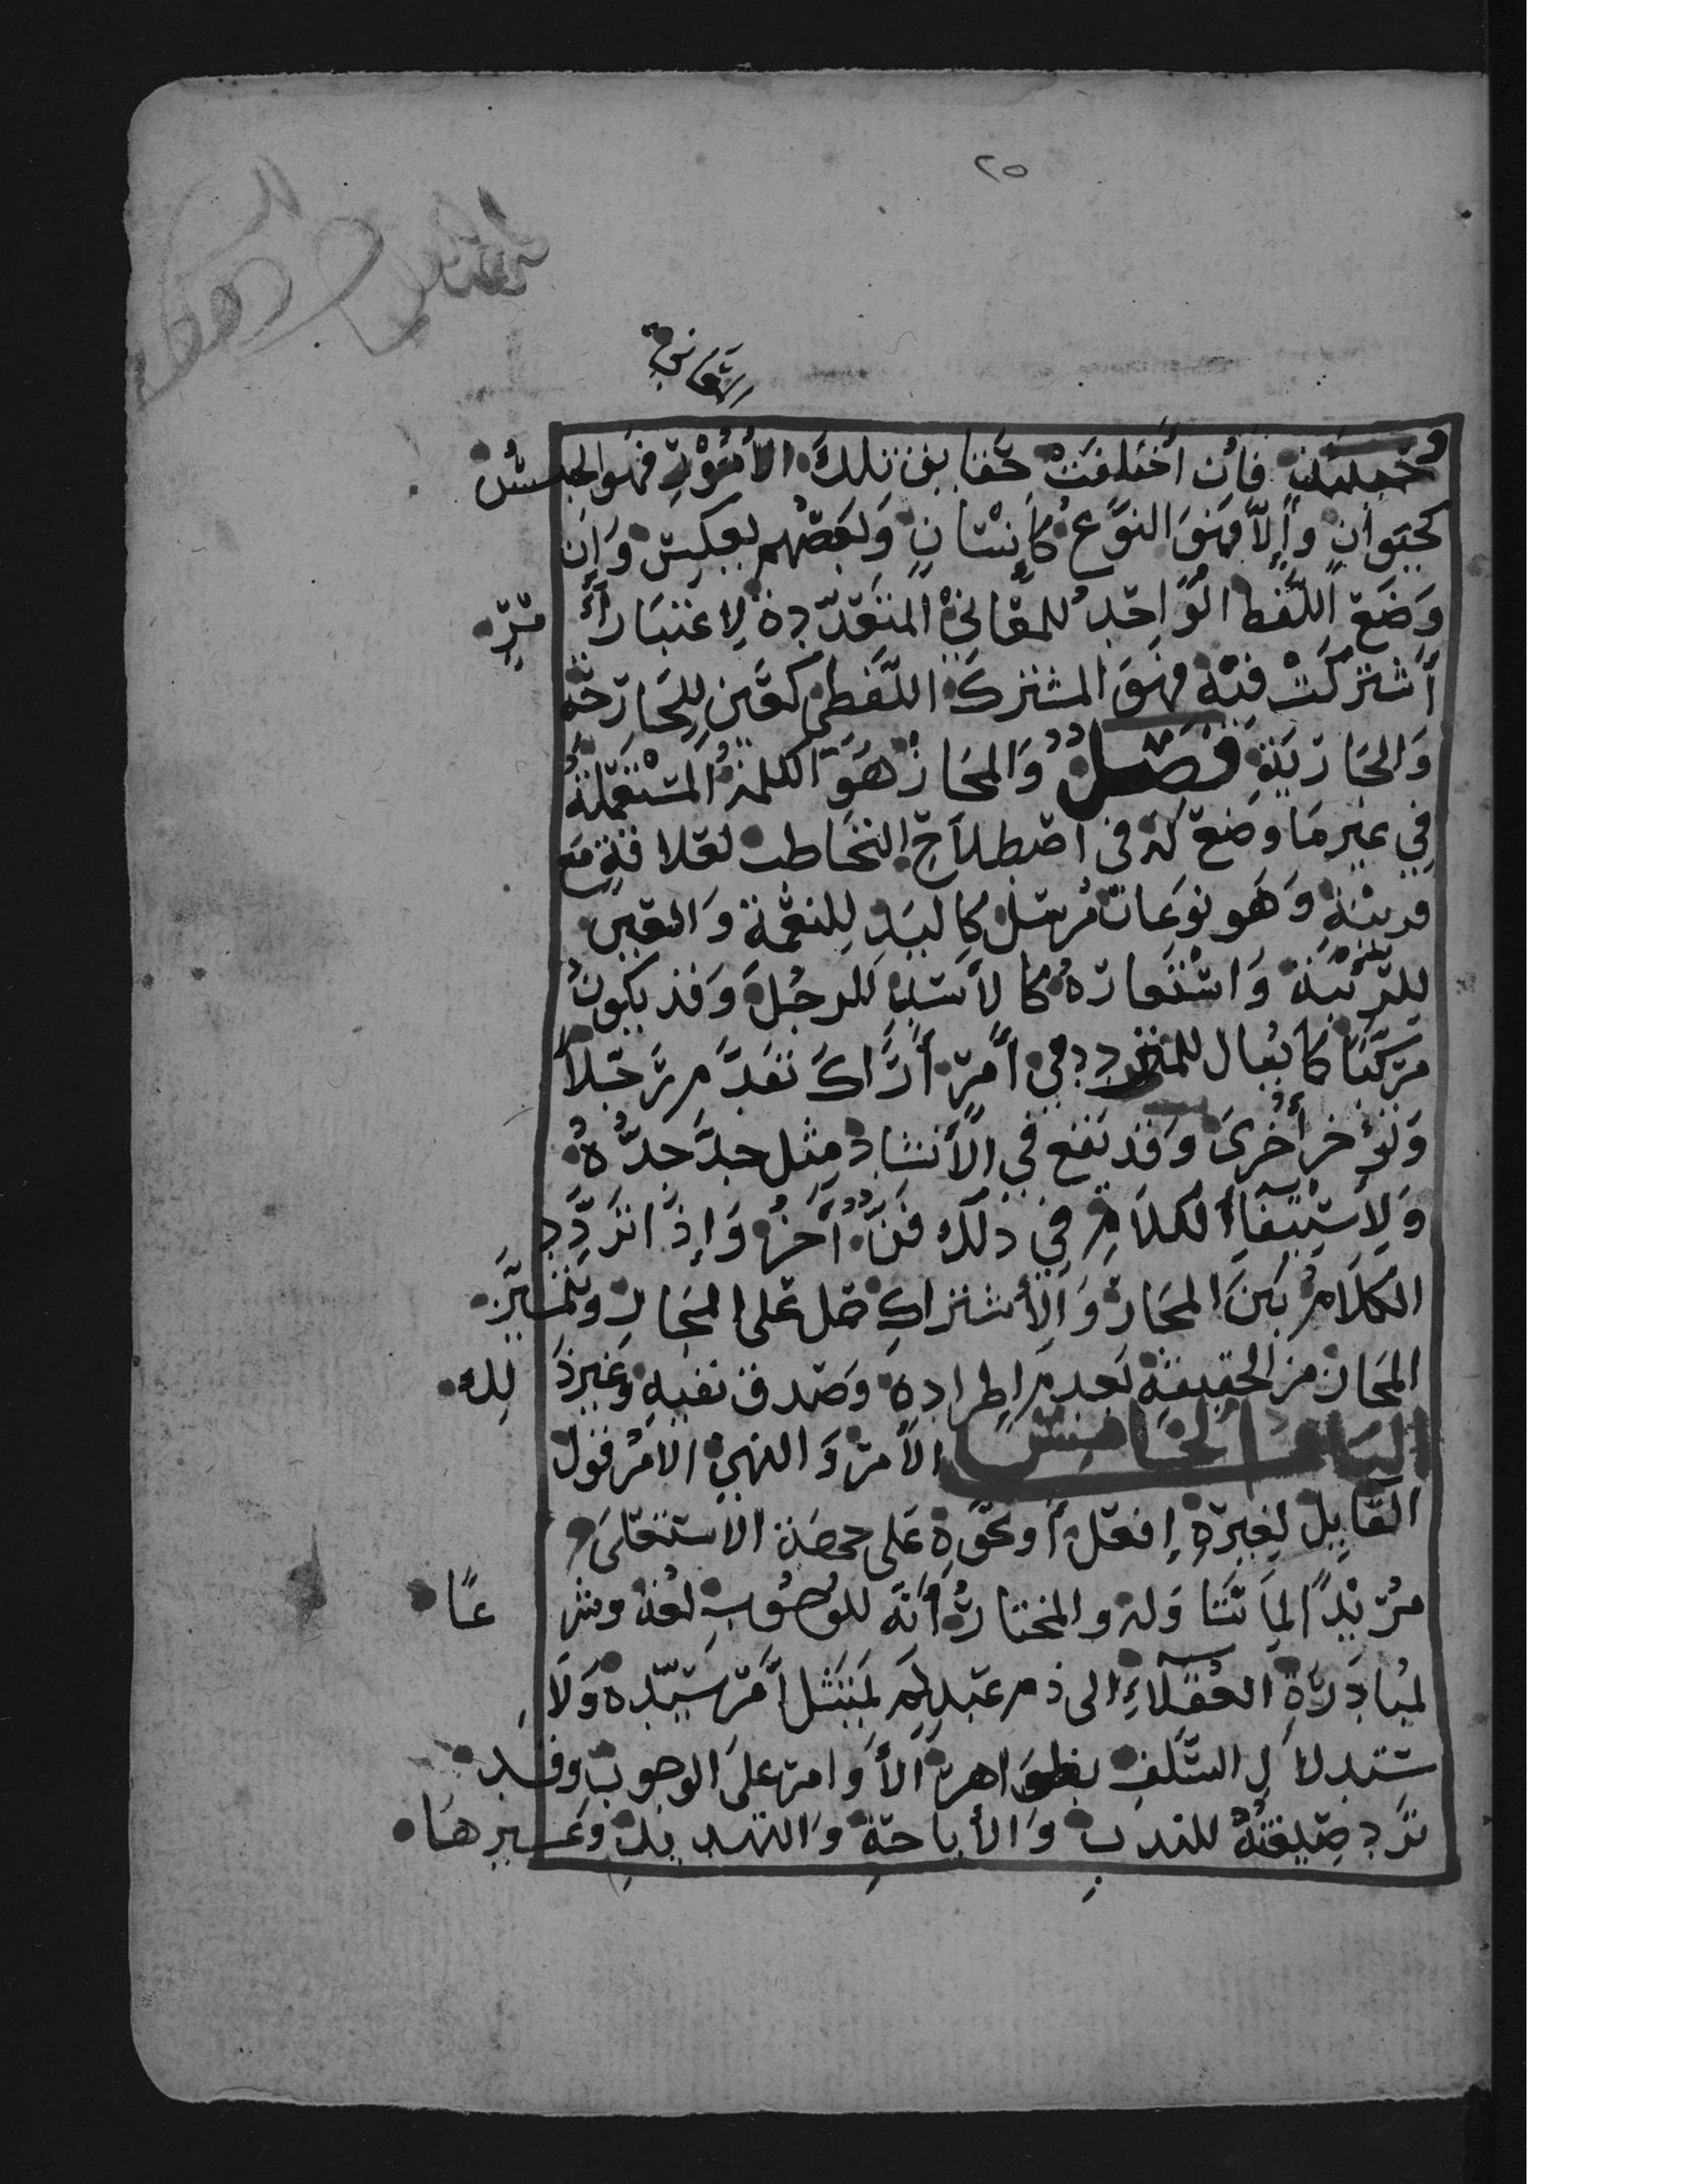 ٢٥
وحينئذ فَإن اختلفت حقايق تلك الأمور فهو الجنس
كحيوان وإلا فهو النوع كإنسان وبعضهم يعكس وإن
وضع اللفظ الواحد للمعاني المتعددة لا عتبار أمر
اشتركت فيه فهو المشترك اللفظي كعين للجارحة
والجارية فصل والمجاز هو الكلمة المستعملة
في غير ما وضعت له في اصطلاح التخاطب لعلاقة مع
قرينة وهو نوعان مرسل كاليد للنعمة والعين
للربئية واستعارة كالأسد للرجل وقد يكون
مركبا كما يقال للمتردد في أمر أراك تقدم رجلا
وتؤخر أخرى وقد يقع في الأسناد مثل جد جده
ولاستيفاء الكلام في ذلك فن آخر وإذا تردد
الكلام بين المجاز والأشتراك حمل على المجاز ويتميز
المجاز من الحقيقة بعدم اطراده وصدق نفيه وغير ذلك
الباب الخامس الأمر والنهي الأمر قول
القايل لغيره إفعل أو نحوه على جهة الاستعلى
مريدًا لما تناوله والمختار أنه للوجوب لغة وشرعًا
لمبادرة العقلاء الى ذم عبد لم يمتثل أمر سيده ولا
ستدلال السلف بظواهر الأوامر على الوجوب وقد
ترد صيغته للندب والأباحة والتهديد وغيرها